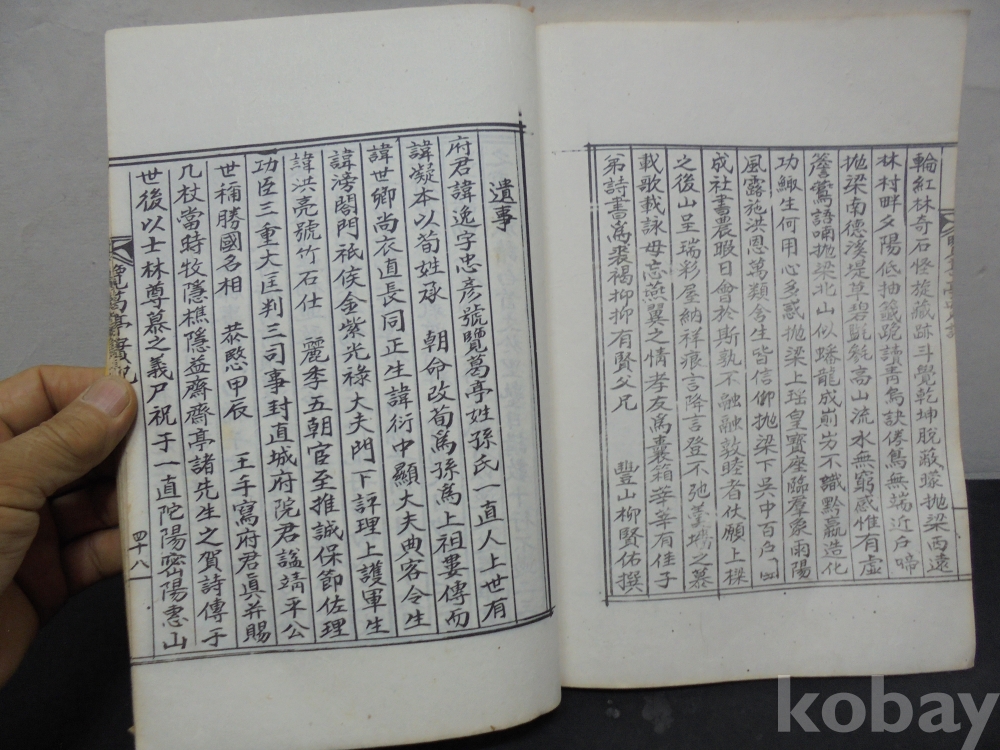 輪紅林奇石怪旋藏跡斗覺乾坤脫蔽蒙抛梁西遠
林村畔夕陽低抽籤跪讀靑鳥訣倦鳥無端近戶啼
抛梁南德溪堤草碧毿毿高山流水無窮感惟有虛
簷鶯語喃抛梁北山似蟠龍成崱屴不識黔嬴造化
功鯫生何用心多惑抛梁上瑤皇寶座臨羣象雨陽
風露施洪恩萬類含生皆信仰抛梁下吳中百戶
成社書農暇日會於斯孰不融融敦睦者伏願上樑
之後山呈瑞彩屋納祥痕言降言登不弛羹墻之慕
載歌載詠毋忘燕翼之情孝友爲裏箱莘莘有佳子
弟詩書爲裘褐抑抑有賢父兄 豐山柳賢佑撰
遺事
府君諱逸字忠彥號覽葛亭姓孫氏一直人上世有
諱凝本以荀姓承 朝命改荀爲孫爲上祖婁傳而
諱世卿尚衣直長同正生諱衍中顯大夫典客令生
諱滂閤門祗候金紫光祿大夫門下評理上護軍生
諱洪亮號竹石仕 麗季五朝官至推誠保節佐理
功臣三重大匡判三司事封直城府院君諡靖平公
世稱勝國名相 恭愍甲辰 王手寫府君眞并賜
几杖當時牧隱樵隱益齋齋亭諸先生之賀詩傳于
世後以士林尊慕之義尸祝于一直陀陽密陽惠山
覽葛亭實記
四十八
kobay